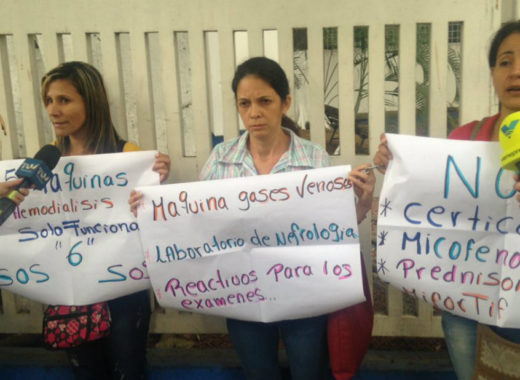 Máquinas
Hemodialisis
Solo Funciona
"6"
SOS SOS
Maquina gases Venosos
LAboratorio de Nefrologia
Reactivos Para los
examenes...
No
* Certic
* Micofeno
* Prednison
* Micortif